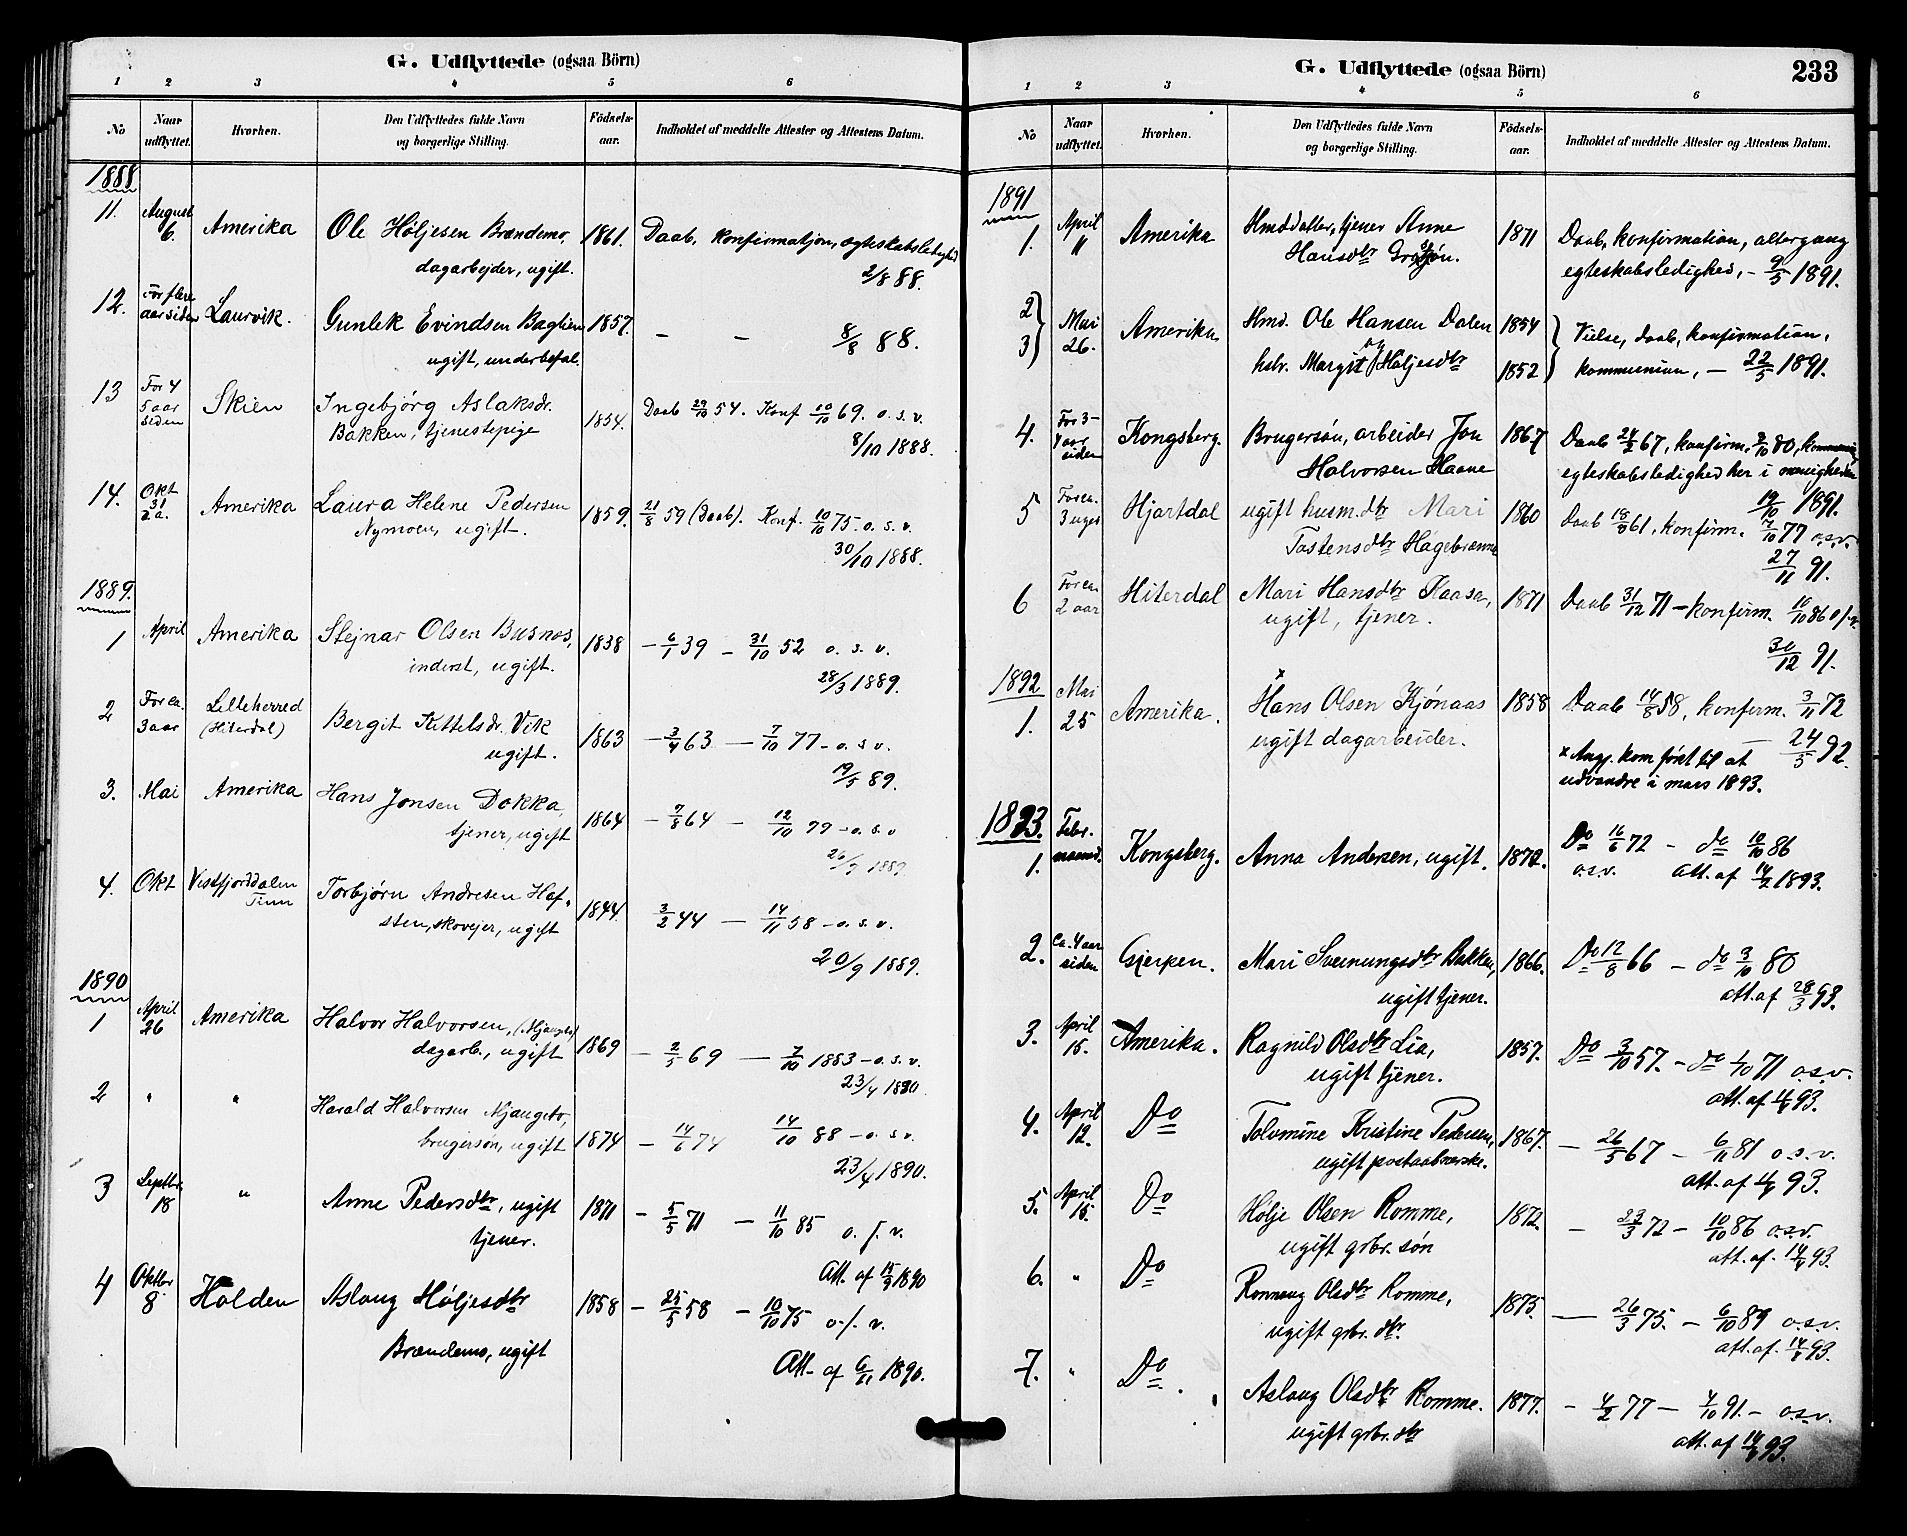 G. Udflyttede (ogsaa Börn)
1 2 3 4 5 6
No Naar udflyttet. Hvorhen. Den Udflyttedes fulde Navn og borgerlige Stilling. Födsels-aar. Indholdet af meddelte Attester og Attestens Datum.
1888
11. August 6. Amerika Ole Höljesen Brændemo, 1861. Daab, konfirmation, ægteskabsledighed
dagarbejder, ugift. 2/8 88.
12. For flere aar siden Laurvik. Gunlek Evindsen 1857. — — 8/8 88.
ugift, underbefal.
13 For 4 5 aar siden Skien Ingebjörg Aslaksdr. 1854. Daab 29/10 54. Konf 10/10 69. o. s. v.
Bakken, tjenestepige 8/10 1888.
14. Okt 31 Amerika Laura Helene Pedersen 1859. 21/8 59 (Daab). Konf. 10/10 75. o. s. v.
Nymoen, ugift. 30/10 1888.
1889.
1 April Amerika Stejnar Olsen Busnes, 1838 — 6/1 39 — 31/10 52 o. s. v.
inderst, ugift. 28/3 1889.
2 For ca. 3 aar Lilleherred (Hiterdal) Bergit Kittelsdr. Vik 1863 — 3/4 63 — 7/10 77 — o. s. v.
ugift. 19/5 89.
3. Mai Amerika Hans Jonsen Dokka, 1864 — 7/8 64 — 12/10 79 — o. s. v
tjener, ugift 1889.
4. Okt Vestfjorddalen Tinn Torbjørn Andresen Haf- 1844. 3/2 44 — 14/11 58 — o. s. v.
sten, skovejer, ugift 20/9 1889.
1890
1 April 26 Amerika Halvor Halvorsen, 1869 — 2/5 69 — 7/10 1883 — o. s. v.
dagarb., ugift 23/4 1890.
2 " " Harald Halvorsen 1874 — 14/6 74 14/10 88 — o. s. v.
brugersøn, ugift 23/4 1890.
3 Septbr. 18 " Anne Pedersdtr, ugift 1871 — 5/5 71 — 11/10 85 o. s. v.
tjener. Att. af 15/9 1890
4 Oktbr 8 Holden Aslaug Höljesdtr 1858 — 25/5 58 — 10/10 75 o. s. v.
Brændemo, ugift Att. af 6/11 1890.
G. Udflyttede (ogsaa Börn) 233
1 2 3 4 5 6
No Naar udflyttet. Hvorhen. Den Udflyttedes fulde Navn og borgerlige Stilling. Födsels-aar. Indholdet af meddelte Attester og Attestens Datum.
1891
1. April " Amerika Hmddatter, tjener Anne 1871 Daab, konfirmation, altergang
Hansdtr egteskabsledighed, — 9/5 1891.
2 3 Mai 26. Amerika Hmd. Ole Hansen Dalen 1854 Vielse, daab, konfirmation,
hstr. Margit Höljesdtr 1852 kommunion, — 22/5 1891.
4. For 3–4 aar siden Kongsberg. Brugersøn, arbeider Jon 1867 Daab 24/2 67, konfirm. 3/10 80, kommunion
Halvorsen Haave egteskabsledighed her i menigheden
19/10 1891.
5 For ca. 3 uger Hjartdal ugift husm.dtr Mari 1860 Daab 61, konfirm. 7/10 77 o.s.v.
Tostensdtr Hagebrenne 27/11 91.
6 For ca. 2 aar Hiterdal Mari Hansdtr Kaasa, 1871 Daab 31/12 71 — konfirm. 10/10 86 o s v.
ugift, tjener. 30/12 91.
1892
1. Mai 25 Amerika. x Hans Olsen Kjønaas 1858 Daab 14/8 58, konfirm. 3/11 72
ugift dagarbeider. — 24/5 92.
x Angj. kom først til at
udvandre i mars 1893.
1893.
1. Febr. maand. Kongsberg. Anna Andersen, ugift. 1872. Do 16/6 72 — do 10/10 86
o.s.v. att. af 14/2 1893.
2. Ca. 4 aar siden Gjerpen. Mari Sveinungsdtr Bakken, 1866. Do 12/8 66 — do 3/10 80
ugift tjener. att. af 28/3 93.
3. April 15. Amerika. Ragnild Olsdtr Lia, 1857. Do 3/10 57. — do 1/10 71 o.s.v.
ugift tjener. att. af 4/4 93.
4. April 12. Do Tolvmine Kristine Pedersen, 1867. — 26/5 67 — 6/11 81 o.s.v.
ugift att. af 4/4 93.
5. April 15. Do Hölje Olsen Romme, 1872. — 23/3 72 — 10/10 86 o.s.v.
ugift grbr. søn att. af. 14/4 93.
6. " Do Ronnaug Olsdtr Romme, 1875. — 26/3 75. — 6/10 89 o.s.v.
ugift grbr. dtr. att. af. 14/4 93.
7. " Do Aslaug Olsdtr Romme. 1877. — 4/2 77 — 4/10 91. — o.s.v.
ugift grbr. dtr att. af 14/4 93.